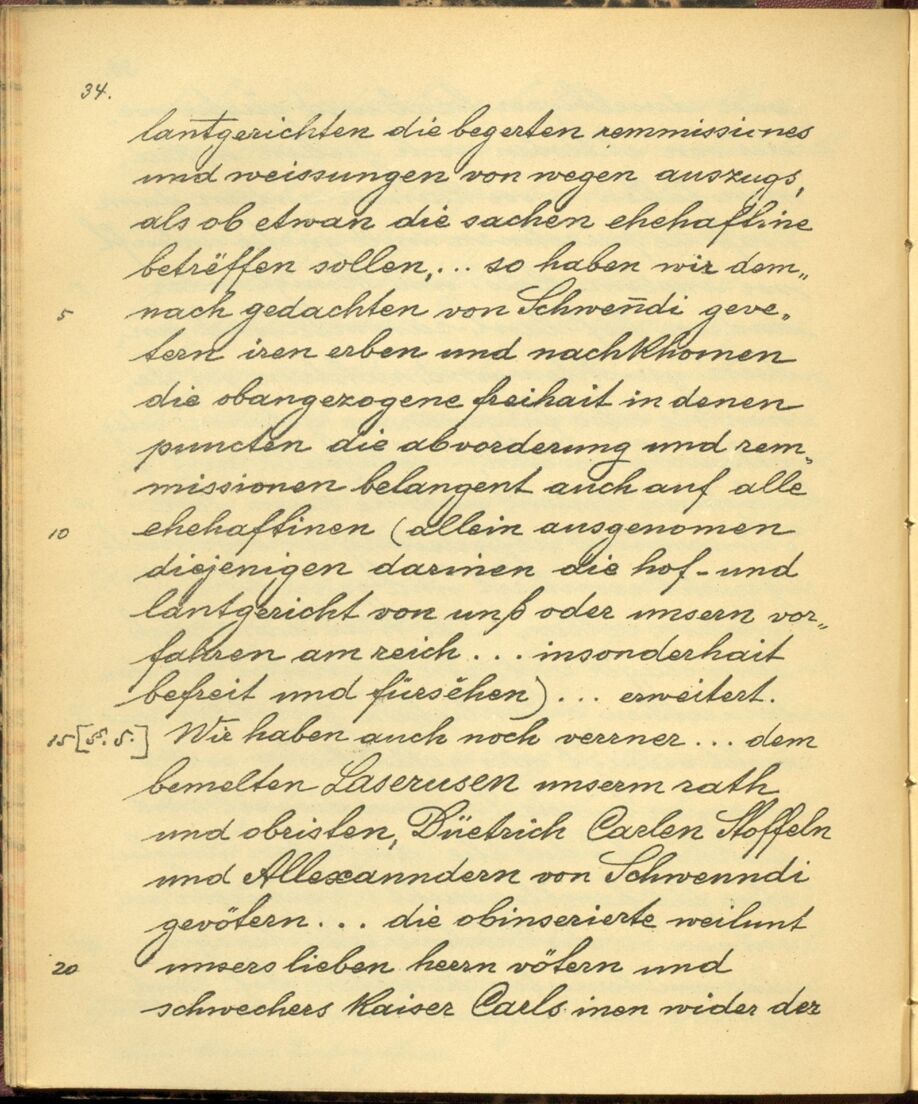 34.
lantgerichten die begerten remmissiones
und weissungen von wegen auszugs,
als ob etwan die sachen ehehaftine
betrëffen sollen,... so haben wir dem„
5 nach gedachten von Schwen̄di geve„
tern iren erben und nachkhomen
die obangezogene freihait in denen
puncten die abvorderung und rem„
missionen belangent auch auf alle
10 ehehaftinen (allein ausgenomen
diejenigen darinen die hof- und
lantgericht von unß oder unsern vor„
fahren am reich ... insonderhait
befreit und fürsëhen) ... erweitert.
15 [§. 5.] Wir haben auch noch verrner ... dem
bemelten Laserusen unserm rath
und obristen, Düetrich Carlen Stoffeln
und Allexanndern von Schwenndi
gevötern ... die obinserierte weilunt
20 unsers lieben herrn vötern und
schwechers Kaiser Carls inen wider der